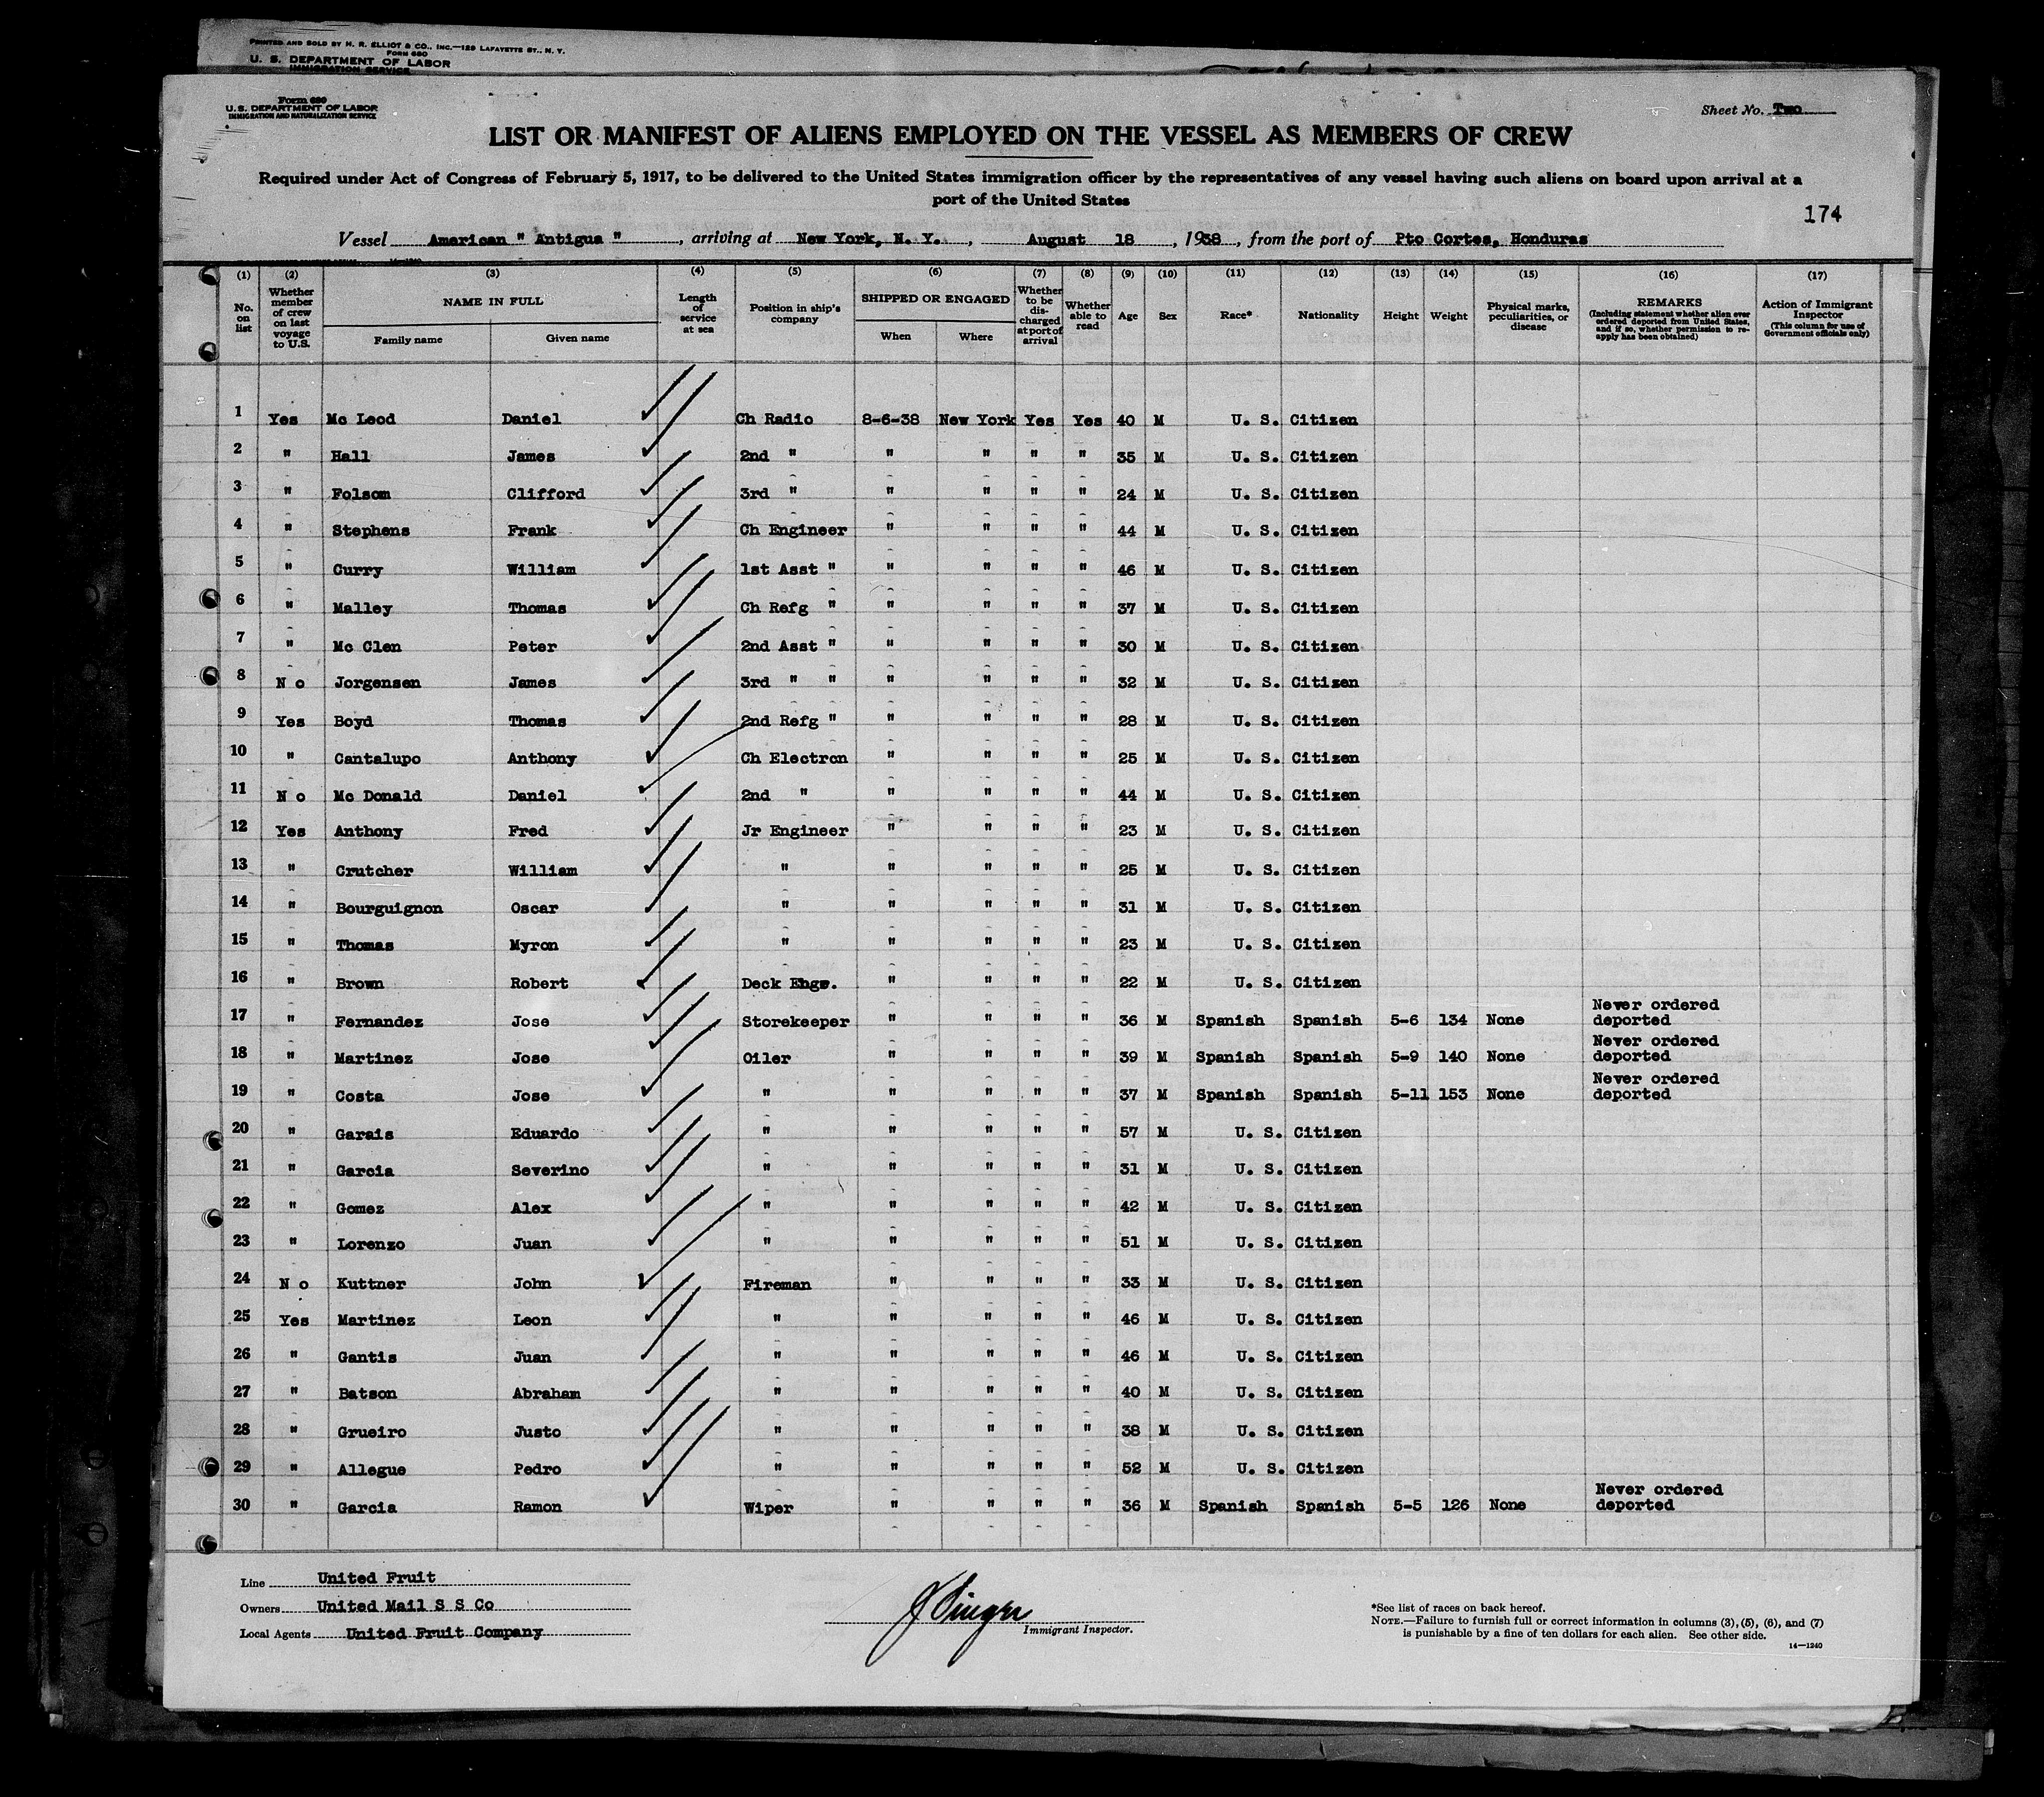 PRINTED AND SOLD BY H. R. ELLIOT & CO., INC.—129 LAFAYETTE ST., N. Y.
FORM 680
U. S. DEPARTMENT OF LABOR
IMMIGRATION SERVICE
Form 680
U. S. DEPARTMENT OF LABOR
IMMIGRATION AND NATURALIZATION SERVICE
Sheet No. Two
LIST OR MANIFEST OF ALIENS EMPLOYED ON THE VESSEL AS MEMBERS OF CREW
Required under Act of Congress of February 5, 1917, to be delivered to the United States immigration officer by the representatives of any vessel having such aliens on board upon arrival at a
port of the United States
174
Vessel American " Antigua ", arriving at New York, N. Y., August 18, 1938, from the port of Pto Cortes, Honduras
(1) (2) (3) (4) (5) (6) (7) (8) (9) (10) (11) (12) (13) (14) (15) (16) (17)
No. on list
Whether member of crew on last voyage to U.S.
NAME IN FULL
Family name
Given name
Length of service at sea
Position in ship's company
SHIPPED OR ENGAGED
When
Where
Whether to be discharged at port of arrival
Whether able to read
Age
Sex
Race*
Nationality
Height
Weight
Physical marks, peculiarities, or disease
REMARKS
(Including statement whether alien ever ordered deported from United States, and if so, whether permission to reapply has been obtained)
Action of Immigrant Inspector
(This column for use of Government officials only)
1 Yes Mc Leod Daniel Ch Radio 8-6-38 New York Yes Yes 40 M U. S. Citizen
2 " Hall James 2nd " " " " " 35 M U. S. Citizen
3 " Folsom Clifford 3rd " " " " " 24 M U. S. Citizen
4 " Stephens Frank Ch Engineer " " " " 44 M U. S. Citizen
5 " Curry William 1st Asst " " " " " 46 M U. S. Citizen
6 " Malley Thomas Ch Refg " " " " " 37 M U. S. Citizen
7 " Mc Clen Peter 2nd Asst " " " " " 30 M U. S. Citizen
8 N o Jorgensen James 3rd " " " " " " 32 M U. S. Citizen
9 Yes Boyd Thomas 2nd Refg " " " " " 28 M U. S. Citizen
10 " Cantalupo Anthony Ch Electrcn " " " " 25 M U. S. Citizen
11 N o Mc Donald Daniel 2nd " " " " " 44 M U. S. Citizen
12 Yes Anthony Fred Jr Engineer " " " " 23 M U. S. Citizen
13 " Crutcher William " " " " " 25 M U. S. Citizen
14 " Bourguignon Oscar " " " " " 31 M U. S. Citizen
15 " Thomas Myron " " " " " 23 M U. S. Citizen
16 " Brown Robert Deck Engr. " " " " 22 M U. S. Citizen
17 " Fernandez Jose Storekeeper " " " " 36 M Spanish Spanish 5-6 134 None Never ordered deported
18 " Martinez Jose Oiler " " " " 39 M Spanish Spanish 5-9 140 None Never ordered deported
19 " Costa Jose " " " " " 37 M Spanish Spanish 5-11 153 None Never ordered deported
20 " Garais Eduardo " " " " " 57 M U. S. Citizen
21 " Garcia Severino " " " " " 31 M U. S. Citizen
22 " Gomez Alex " " " " " 42 M U. S. Citizen
23 " Lorenzo Juan " " " " " 51 M U. S. Citizen
24 N o Kuttner John Fireman " " " " 33 M U. S. Citizen
25 Yes Martinez Leon " " " " " 46 M U. S. Citizen
26 " Gantis Juan " " " " " 46 M U. S. Citizen
27 " Batson Abraham " " " " " 40 M U. S. Citizen
28 " Grueiro Justo " " " " " 38 M U. S. Citizen
29 " Allegue Pedro " " " " " 52 M U. S. Citizen
30 " Garcia Ramon Wiper " " " " 36 M Spanish Spanish 5-5 126 None Never ordered deported
Line United Fruit
Owners United Mail S S Co
Local Agents United Fruit Company
J Singer
Immigrant Inspector.
*See list of races on back hereof.
NOTE.—Failure to furnish full or correct information in columns (3), (5), (6), and (7)
is punishable by a fine of ten dollars for each alien. See other side.
14—1240